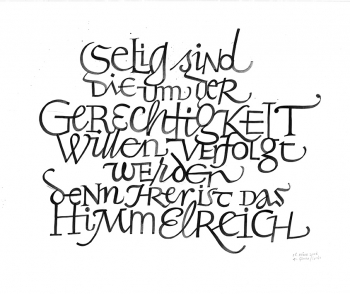 Selig sind
die um der
Gerechtigkeit
willen verfolgt
werden
denn ihrer ist das
Himmelreich